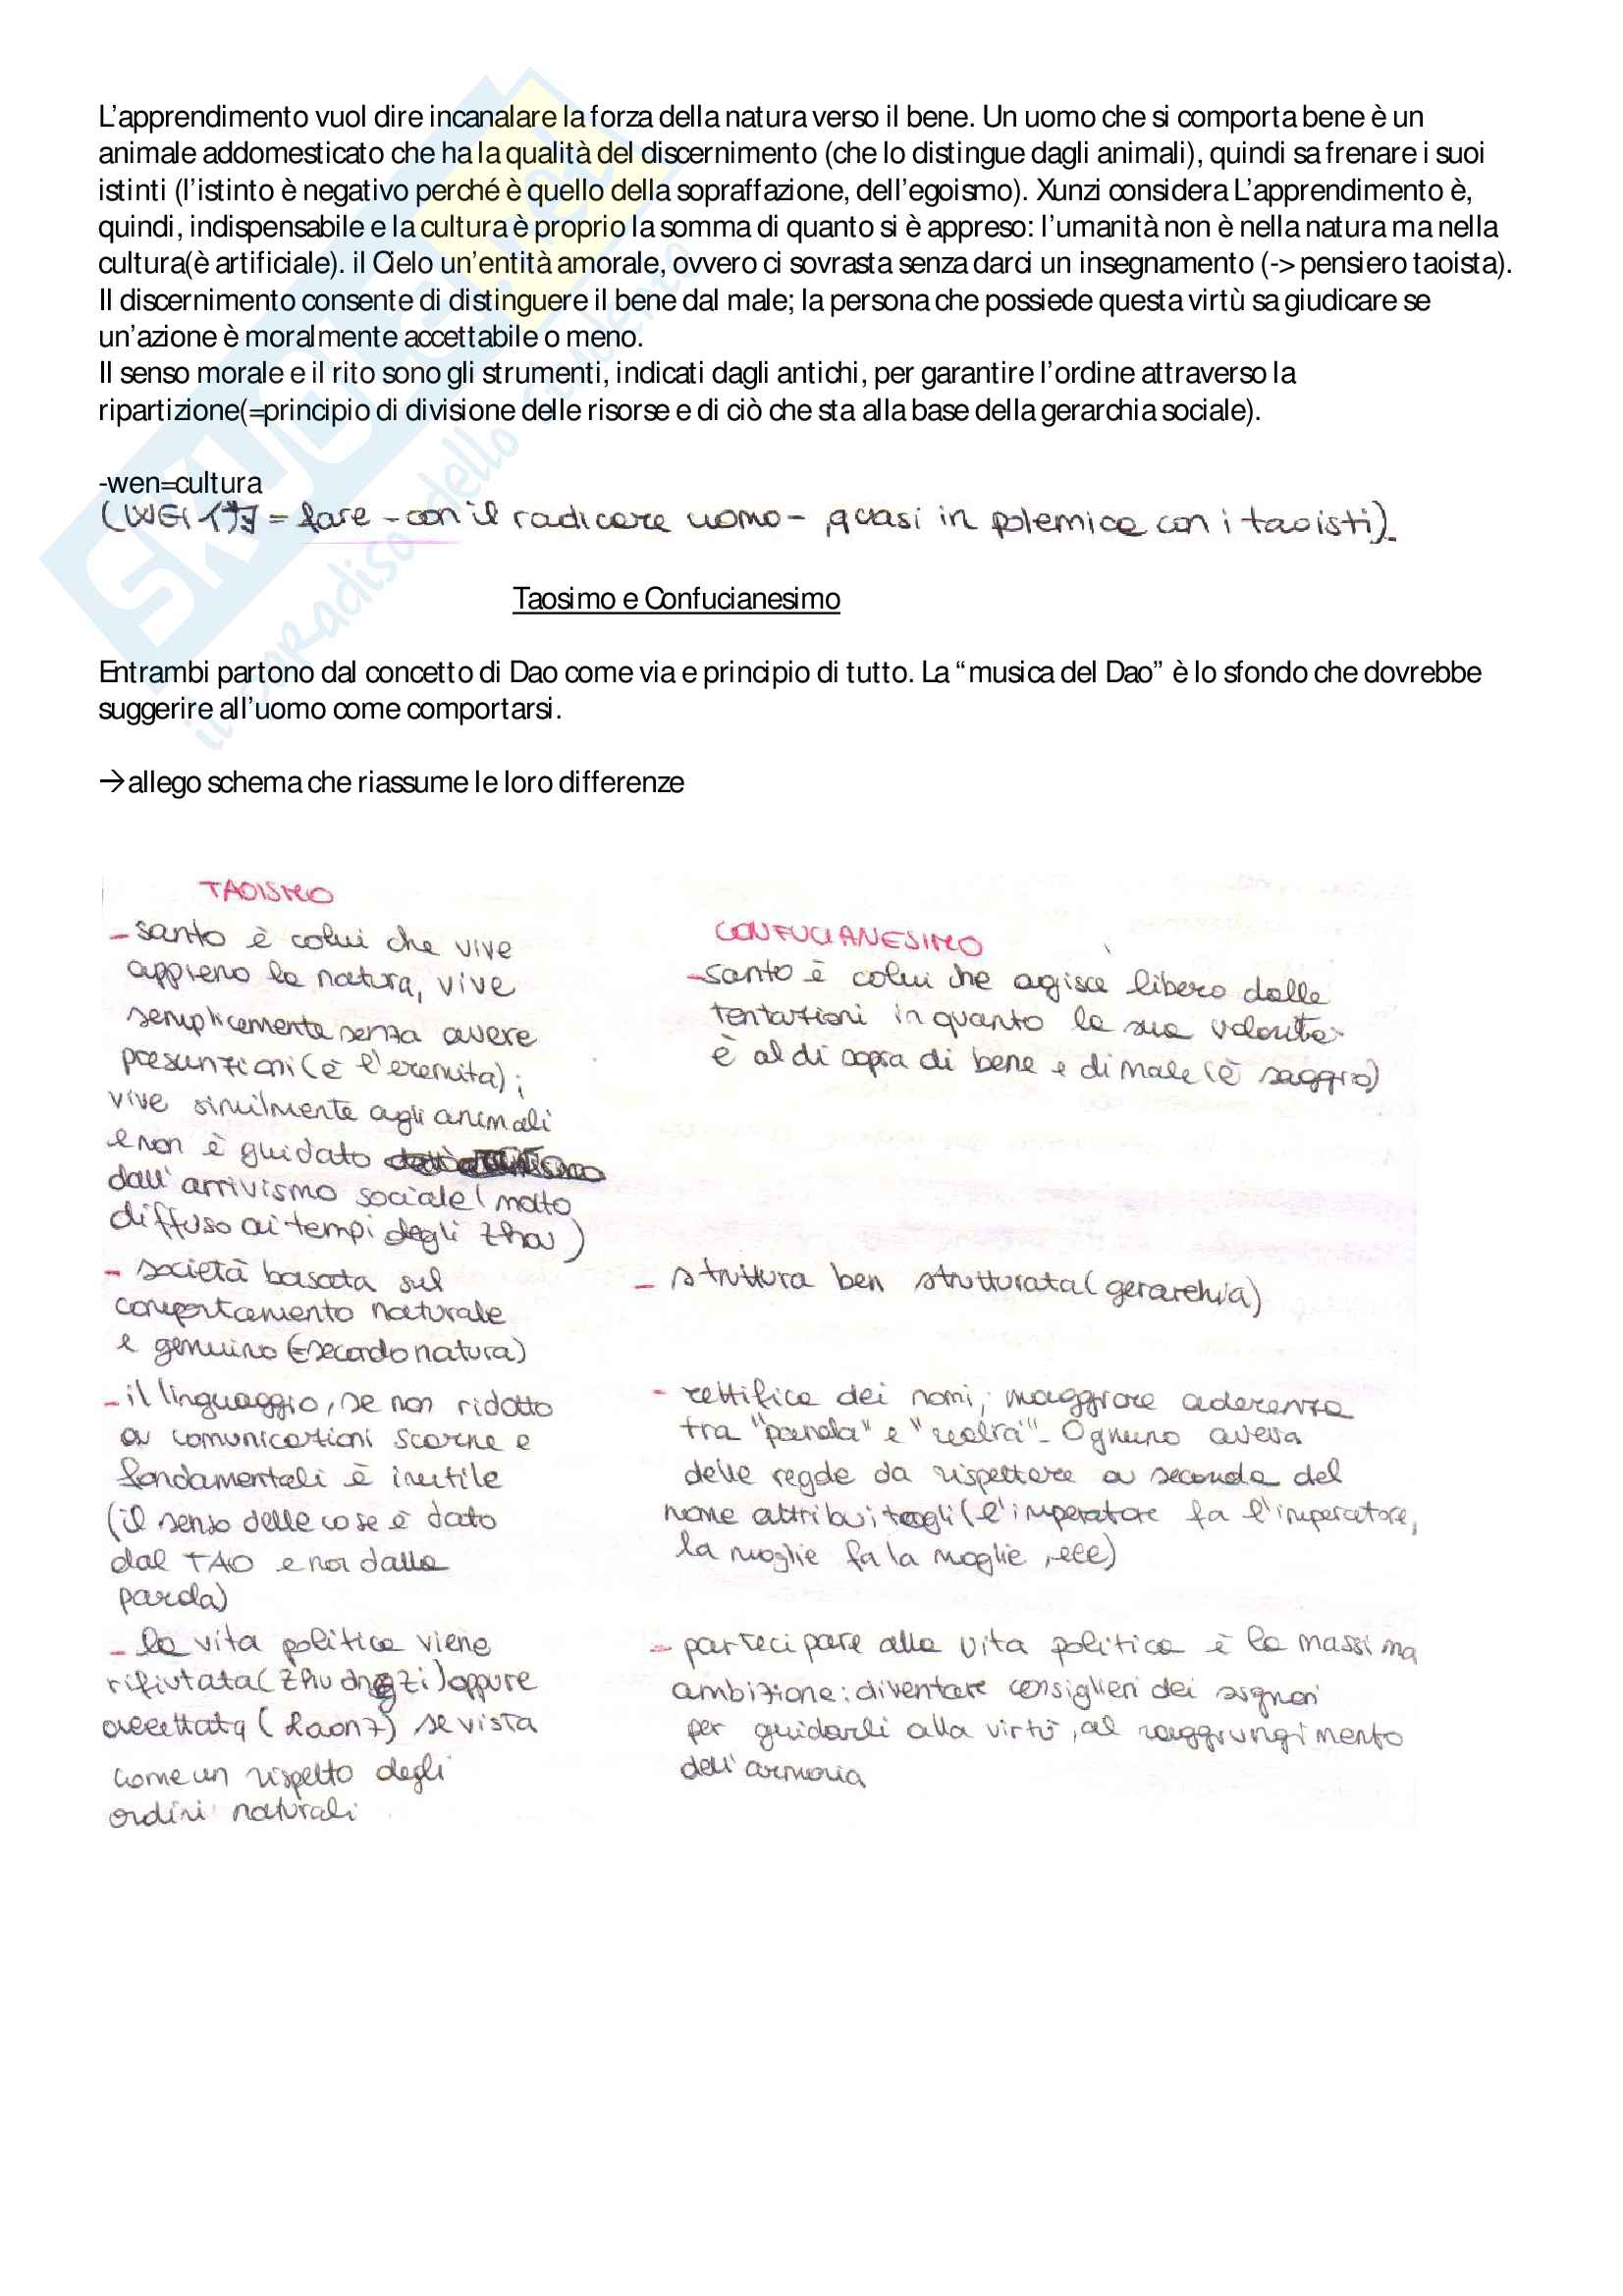 L'apprendimento vuol dire incanalare la forza della natura verso il bene. Un uomo che si comporta bene è un
animale addomesticato che ha la qualità del discernimento (che lo distingue dagli animali), quindi sa frenare i suoi
istinti (l'istinto è negativo perché è quello della sopraffazione, dell'egoismo). Xunzi considera L'apprendimento è,
quindi, indispensabile e la cultura è proprio la somma di quanto si è appreso: l'umanità non è nella natura ma nella
cultura(è artificiale). il Cielo un'entità amorale, ovvero ci sovrasta senza darci un insegnamento (-> pensiero taoista).
Il discernimento consente di distinguere il bene dal male; la persona che possiede questa virtù sa giudicare se
un'azione è moralmente accettabile o meno.
Il senso morale e il rito sono gli strumenti, indicati dagli antichi, per garantire l'ordine attraverso la
ripartizione(=principio di divisione delle risorse e di ciò che sta alla base della gerarchia sociale).
-wen=cultura
(WEI = fare - con il radicare uomo - quasi in polemica con i taoisti)
Taosimo e Confucianesimo
Entrambi partono dal concetto di Dao come via e principio di tutto. La “musica del Dao” è lo sfondo che dovrebbe
suggerire all'uomo come comportarsi.
→allego schema che riassume le loro differenze
TAOISMO
- santo è colui che vive
appieno la natura, vive
semplicemente senza avere
presunzioni (è l'eremita);
vive similmente agli animali
e non è guidato
dall'arrivismo sociale (molto
diffuso ai tempi degli Zhou)
- società basata sul
comportamento naturale
e genuino (=secondo natura)
- il linguaggio, se non ridotto
a comunicazioni scarne e
fondamentali è inutile
(il senso delle cose è dato
dal TAO e non dalla
parola)
- la vita politica viene
rifiutata (Zhuangzi) oppure
accettata (Laozi) se vista
come un rispetto degli
ordini naturali
CONFUCIANESIMO
- santo è colui che agisce libero dalle
tentazioni in quanto la sua volontà
è al di sopra di bene e di male (è saggio)
- struttura ben strutturata (gerarchia)
- rettifica dei nomi; maggiore aderenza
tra "parola" e "realtà". Ognuno aveva
delle regole da rispettare a seconda del
nome attribuitogli (l'imperatore fa l'imperatore,
la moglie fa la moglie, ecc)
- partecipare alla vita politica è la massima
ambizione: diventare consiglieri dei signori
per guidarli alla virtù, al raggiungimento
dell'armonia
SKUOLA.net
il paradiso dello studente